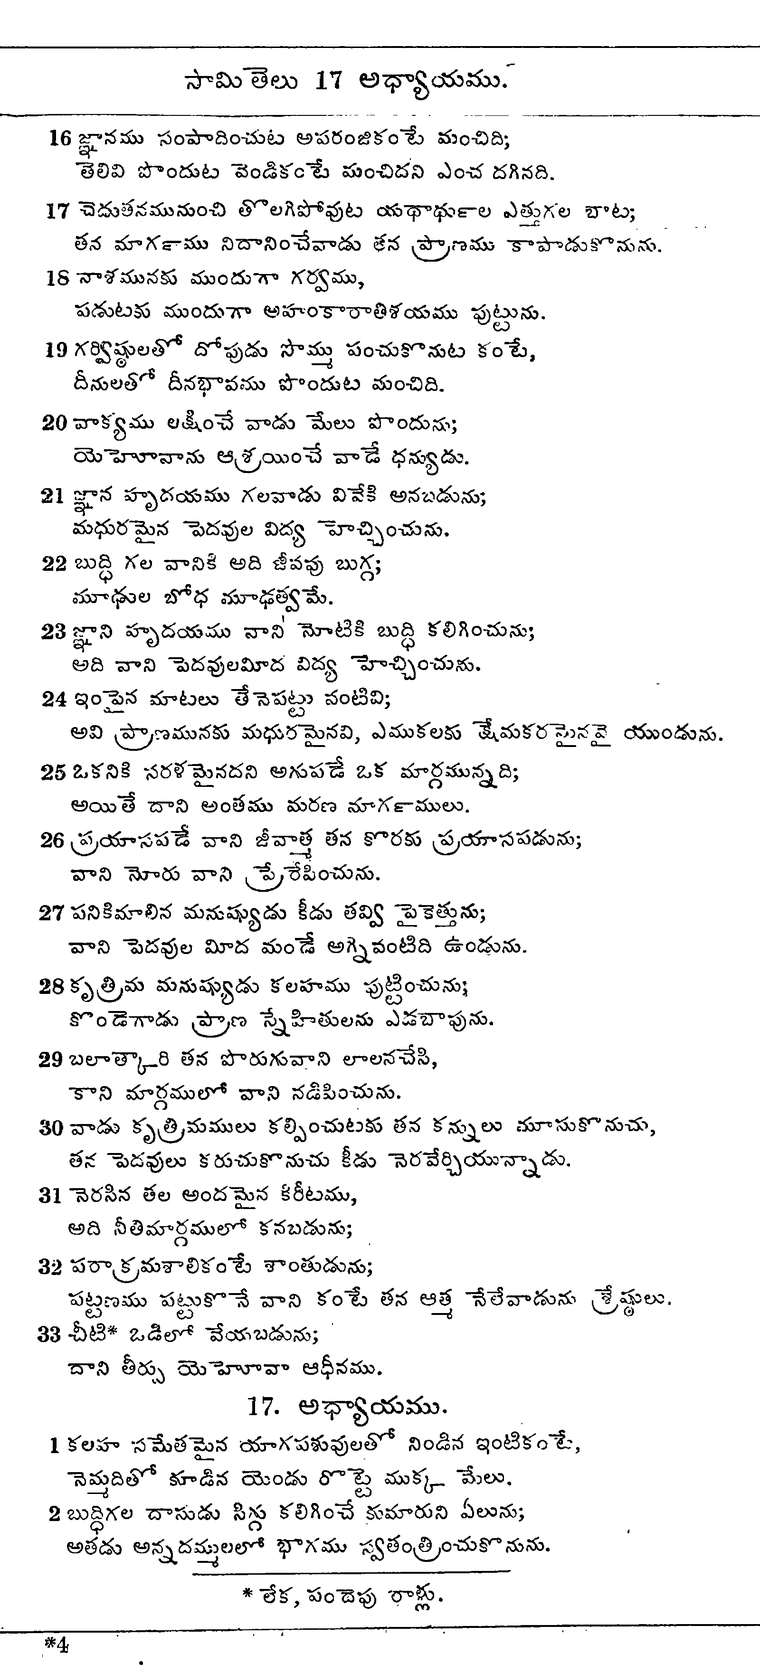 సామితెలు 17 అధ్యాయము.
16 జ్ఞానము సంపాదించుట అపరంజికంటే మంచిది;
తెలివి పొందుట వెండికంటే మంచిదని ఎంచ దగినది.
17 చెడుతనమునుంచి తొలగిపోవుట యథార్థుల ఎత్తుగల బాట;
తన మార్గము నిదానించేవాడు తన ప్రాణము కాపాడుకొనును.
18 నాశమునకు ముందుగా గర్వము,
పడుటకు ముందుగా అహంకారాతిశయము పుట్టును.
19 గర్విష్ఠులతో దోపుడు సొమ్ము పంచుకొనుట కంటే,
దీనులతో దీనభావము పొందుట మంచిది.
20 వాక్యము లక్షించే వాడు మేలు పొందును;
యెహోవాను ఆశ్రయించే వాడే ధన్యుడు.
21 జ్ఞాన హృదయము గలవాడు వివేకి అనబడును;
మధురమైన పెదవుల విద్య హెచ్చించును.
22 బుద్ధి గల వానికి అది జీవపు బుగ్గ;
మూఢుల బోధ మూఢత్వమే.
23 జ్ఞాని హృదయము వాని నోటికి బుద్ధి కలిగించును;
అది వాని పెదవులమీద విద్య హెచ్చించును.
24 ఇంపైన మాటలు తేనెపట్టు వంటివి;
అవి ప్రాణమునకు మధురమైనవి, ఎముకలకు క్షేమకరమైనవై యుండును.
25 ఒకనికి సరళమైనదని అగుపడే ఒక మార్గమున్నది;
అయితే దాని అంతము మరణ మార్గములు.
26 ప్రయాసపడే వాని జీవాత్మ తన కొరకు ప్రయాసపడును;
వాని నోరు వాని ప్రేరేపించును.
27 పనికిమాలిన మనుష్యుడు కీడు తవ్వి పైకెత్తును;
వాని పెదవుల మీద మండే అగ్నివంటిది ఉండును.
28 కృత్రిమ మనుష్యుడు కలహము పుట్టించును;
కొండెగాడు ప్రాణ స్నేహితులను ఎడబాపును.
29 బలాత్కారి తన పొరుగువాని లాలనచేసి,
కాని మార్గములో వాని నడిపించును.
30 వాడు కృత్రిమములు కల్పించుటకు తన కన్నులు మూసుకొనుచు,
తన పెదవులు కరుచుకొనుచు కీడు నెరవేర్చియున్నాడు.
31 నెరసిన తల అందమైన కిరీటము,
అది నీతిమార్గములో కనబడును;
32 పరాక్రమశాలికంటే శాంతుడును;
పట్టణము పట్టుకొనే వాని కంటే తన ఆత్మ నేలేవాడును శ్రేష్ఠులు.
33 చీటి* ఒడిలో వేయబడును;
దాని తీర్పు యెహోవా ఆధీనము.
17. అధ్యాయము.
1 కలహ సమేతమైన యాగపశువులతో నిండిన ఇంటికంటే,
నెమ్మదితో కూడిన యెండు రొట్టె ముక్క మేలు.
2 బుద్ధిగల దాసుడు సిగ్గు కలిగించే కుమారుని ఏలును;
అతడు అన్నదమ్ములలో భాగము స్వతంత్రించుకొనును.
* లేక, పందెపు రాళ్లు.
*4